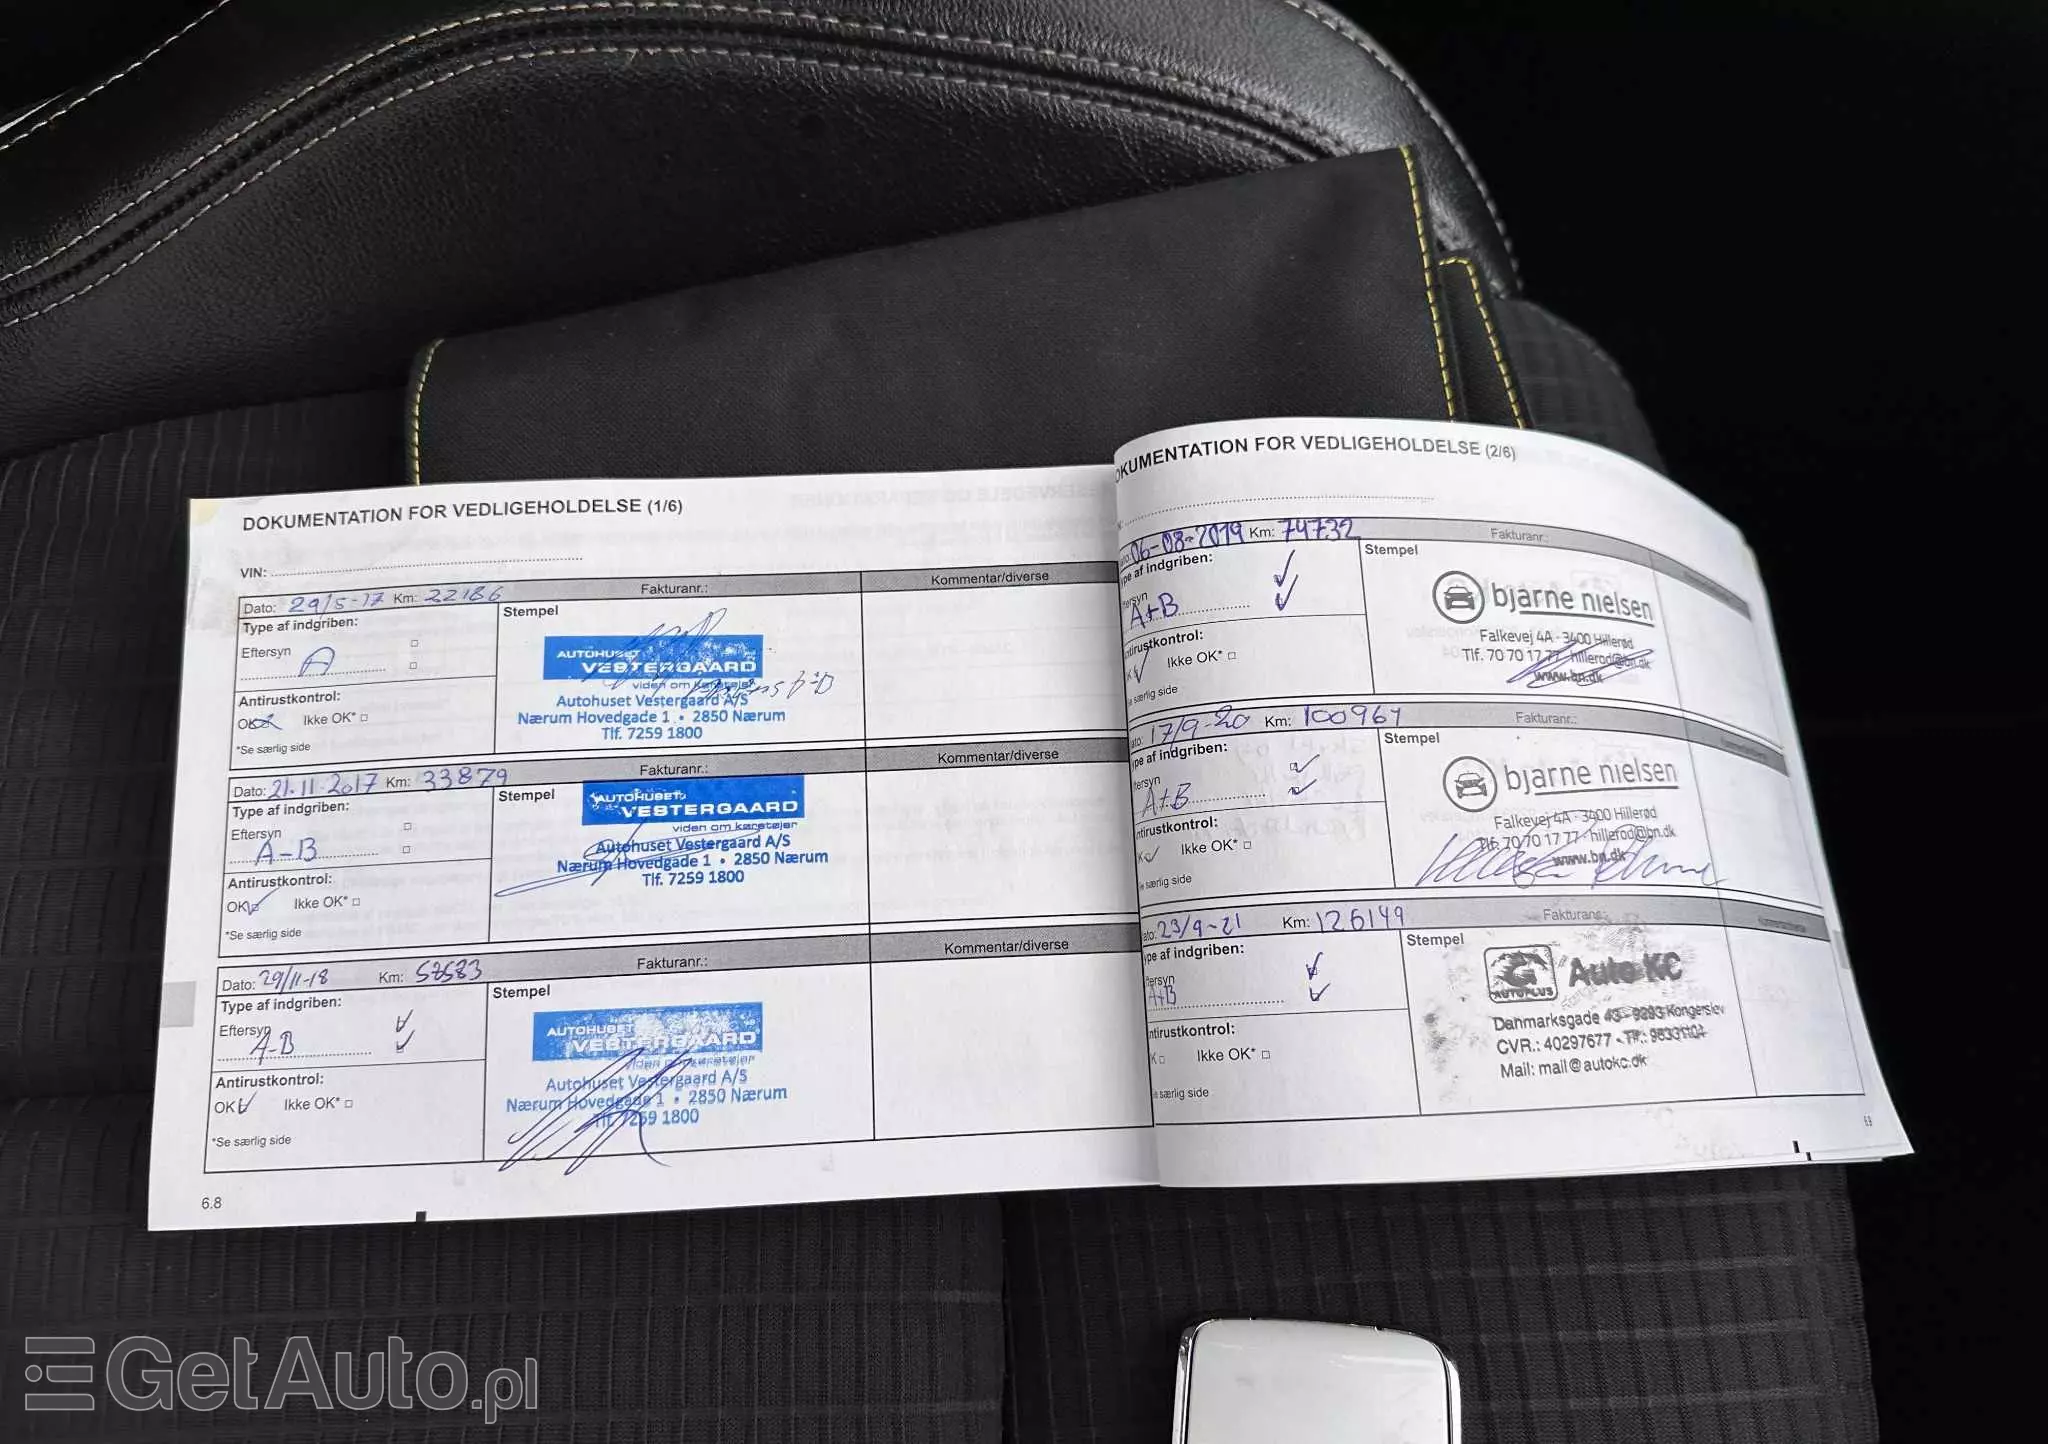 DOKUMENTATION FOR VEDLIGEHOLDELSE (1/6)
VIN:
Dato: 29/5-17 Km: 22186 Fakturanr.: Kommentar/diverse
Type af indgriben: Stempel
Eftersyn
A
AUTOHUSET
VESTERGAARD
viden om køretøjer
Autohuset Vestergaard A/S
Nærum Hovedgade 1 • 2850 Nærum
Tlf. 7259 1800
Antirustkontrol:
OK Ikke OK*
*Se særlig side
Dato: 21.11.2017 Km: 33879 Fakturanr.: Kommentar/diverse
Type af indgriben: Stempel
Eftersyn
A-B
AUTOHUSET
VESTERGAARD
viden om køretøjer
Autohuset Vestergaard A/S
Nærum Hovedgade 1 • 2850 Nærum
Tlf. 7259 1800
Antirustkontrol:
OK Ikke OK*
*Se særlig side
Dato: 29/11-18 Km: Fakturanr.: Kommentar/diverse
Type af indgriben: Stempel
Eftersyn
A-B
AUTOHUSET
VESTERGAARD
viden om køretøjer
Autohuset Vestergaard A/S
Nærum Hovedgade 1 • 2850 Nærum
Tlf. 7259 1800
Antirustkontrol:
OK Ikke OK*
*Se særlig side
6.8
OKUMENTATION FOR VEDLIGEHOLDELSE (2/6)
ato: 06-08-2019 Km: 74732 Fakturanr.:
ype af indgriben: Stempel
ftersyn
A+B
bjarne nielsen
Falkevej 4A - 3400 Hillerød
Tlf. 70 70 17 77 - hillerod@bn.dk
www.bn.dk
ntirustkontrol:
K Ikke OK*
e særlig side
ato: 17/9-20 Km: 100967 Fakturanr.:
ype af indgriben: Stempel
ftersyn
A+B
bjarne nielsen
Falkevej 4A - 3400 Hillerød
Tlf. 70 70 17 77 - hillerod@bn.dk
www.bn.dk
ntirustkontrol:
K Ikke OK*
e særlig side
ato: 23/9-21 Km: 126149 Fakturanr.:
ype af indgriben: Stempel
ftersyn
A+B
AUTOPLUS Auto KC
Danmarksgade 43 - 9293 Kongerslev
CVR.: 40297677 - Tlf.: 98331104
Mail: mail@autokc.dk
ntirustkontrol:
K Ikke OK*
e særlig side
GetAuto.pl